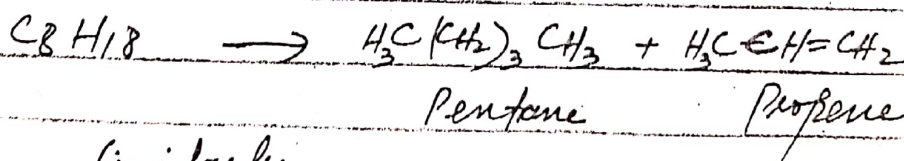 C8 H18 ⟶ H3C(CH2)3CH3 + H3C CH=CH2
Pentane Propene